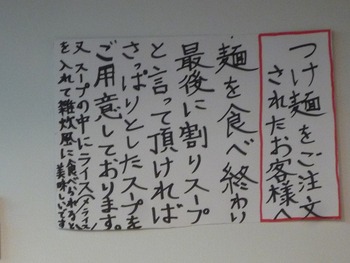 つけ麺をご注文
されたお客様へ
麺を食べ終わり
最後に割りスープ
と言って頂ければ
さっぱりとしたスープを
ご用意しております。
又スープの中にライス
を入れて雑炊風に食べられると
美味しいです